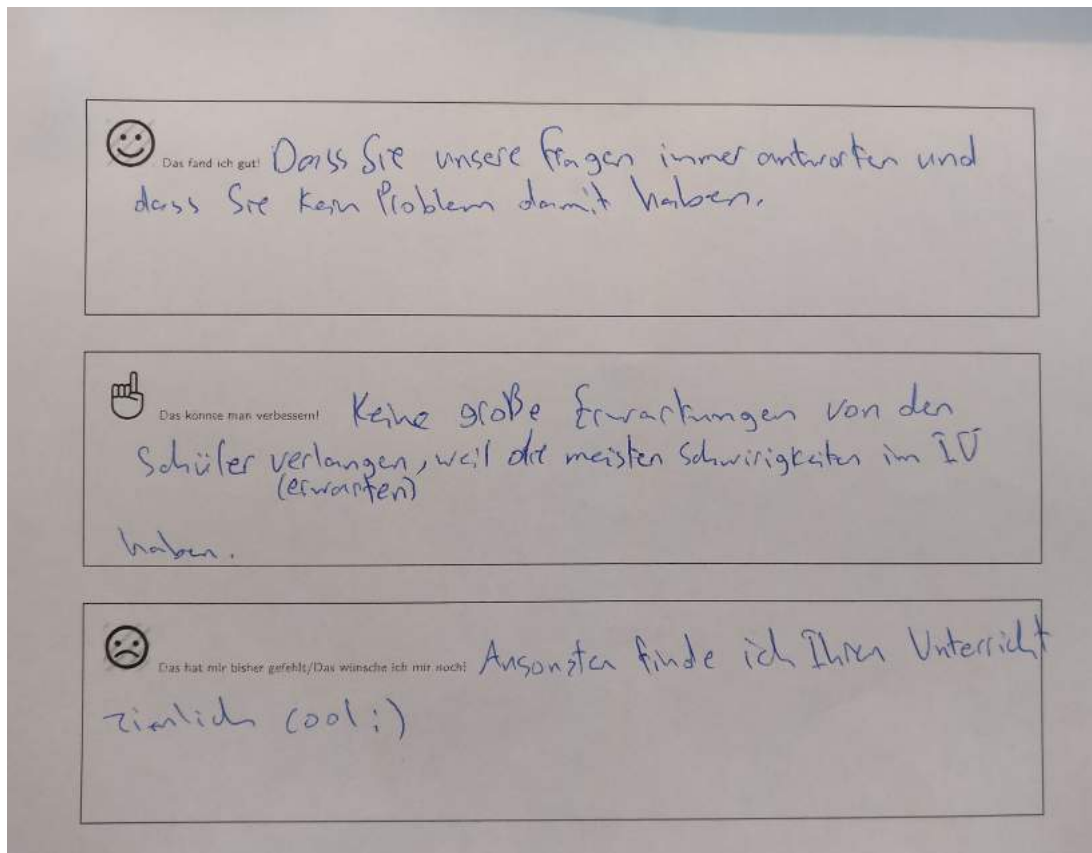 Das fand ich gut! Dass Sie unsere Fragen immer antworten und
dass Sie kein Problem damit haben.
Das könnte man verbessern! Keine große Erwartungen von den
Schüler verlangen, weil die meisten Schwirigkeiten im IU
(erwarten)
haben.
Das hat mir bisher gefehlt/Das wünsche ich mir noch! Ansonsten finde ich Ihren Unterricht
ziemlich cool ;)